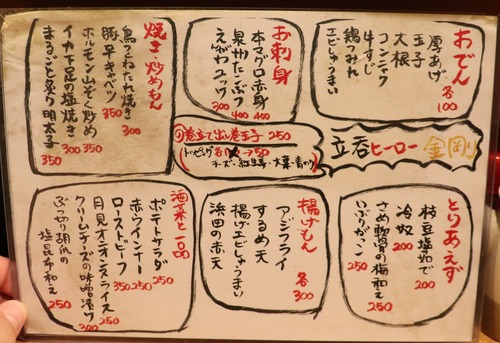 おでん
各100
厚あげ
玉子
大根
コンニャク
牛すじ
鶏つみれ
エビしゅうまい
お刺身
本マグロ赤身 400
泉州たこぶつ 400
えびわユッケ 300
焼き・炒めもん
鳥つくねたれ焼き 300
豚平キャベツ 350
ホルモン山ぞく炒め 350
イカ下足の塩焼き 300
まるごと炙り明太子 350
巻立て出し巻玉子 250
(トッピング各 →50
チーズ・紅生姜・大葉・青のり)
立呑ヒーロー 金剛
とりあえず
枝豆塩ゆで 200
冷奴 200
さめ軟骨の梅和え 250
いぶりがっこ 250
揚げもん
各300
アジフライ
するめ天
揚げエビしゅうまい
浜田の赤天
酒菜と一品
ポテトサラダ 250
赤ウインナー 250
ローストビーフ 350
月見オニオンスライス 250
クリームチーズの味噌漬け 300
ぶつ切り胡瓜の
塩昆布和え 250